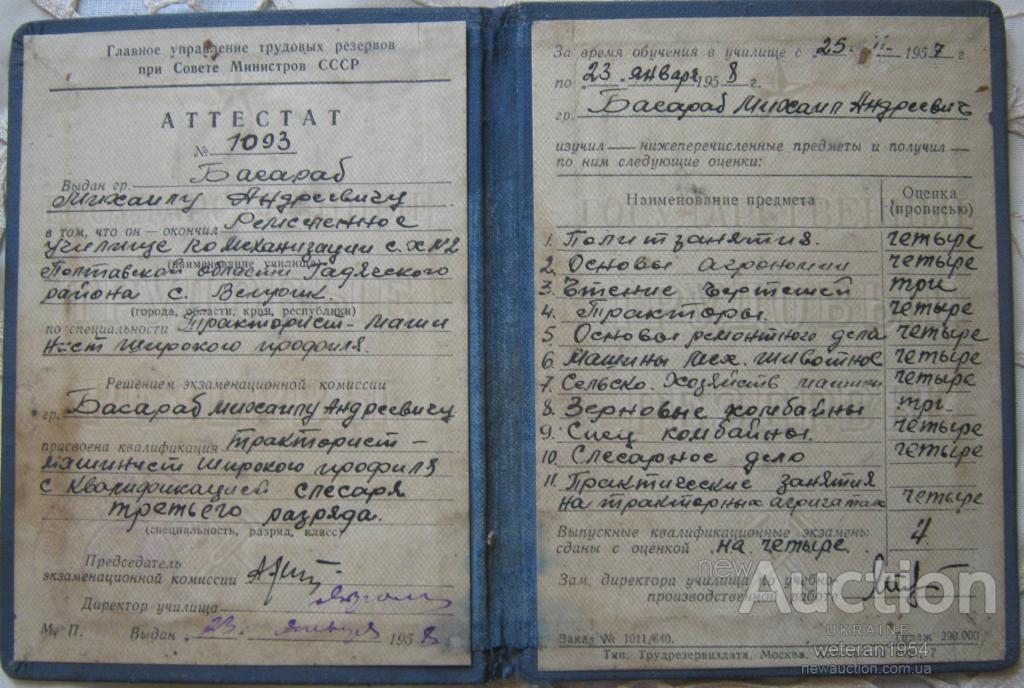 Главное управление трудовых резервов
при Совете Министров СССР
АТТЕСТАТ
№ 1093
Выдан гр. Басараб
Михаилу Андреевичу
в том, что он — окончил Ремесленное
училище по механизации с. х №2
(наименование училища)
Полтавской области Гадяческого
района с.
(города, области, края, республики)
по специальности Тракторист - маши
нист широкого профиля.
Решением экзаменационной комиссии
гр. Басараб Михаилу Андреевичу
присвоена квалификация тракторист -
машинист широкого профиля
с квалификацией слесаря
третьего разряда.
(специальность, разряд, класс)
Председатель
экзаменационной комиссии
Директор училища
М. П. Выдан 23 января 1958
За время обучения в училище с 25 1957 г.
по 23 января 1958 г.
гр. Басараб Михаил Андреевич
изучил — нижеперечисленные предметы и получил —
по ним следующие оценки:
Наименование предмета
Оценка
(прописью)
1. Политзанятия. четыре
2. Основы агрономии четыре
3. Чтение чертежей три
4. Тракторы. четыре
5 Основы ремонтного дела четыре
6 Машины мех. животное четыре
7 Сельско. Хозяйств машины четыре
8. Зерновые комбайны три.
9. Спец комбайны. четыре
10. Слесарное дело четыре
11. Практические занятия
на тракторных агригатах четыре
Выпускные квалификационные экзамены
сданы с оценкой на четыре. 4
Зам. директора училища по учебно-
производственной работе
Заказ № 1011/640. Тираж 290.000
Тип. Трудрезервиздата, Москва,
newAuction
UKRAINE
weteran1954
newauction.com.ua